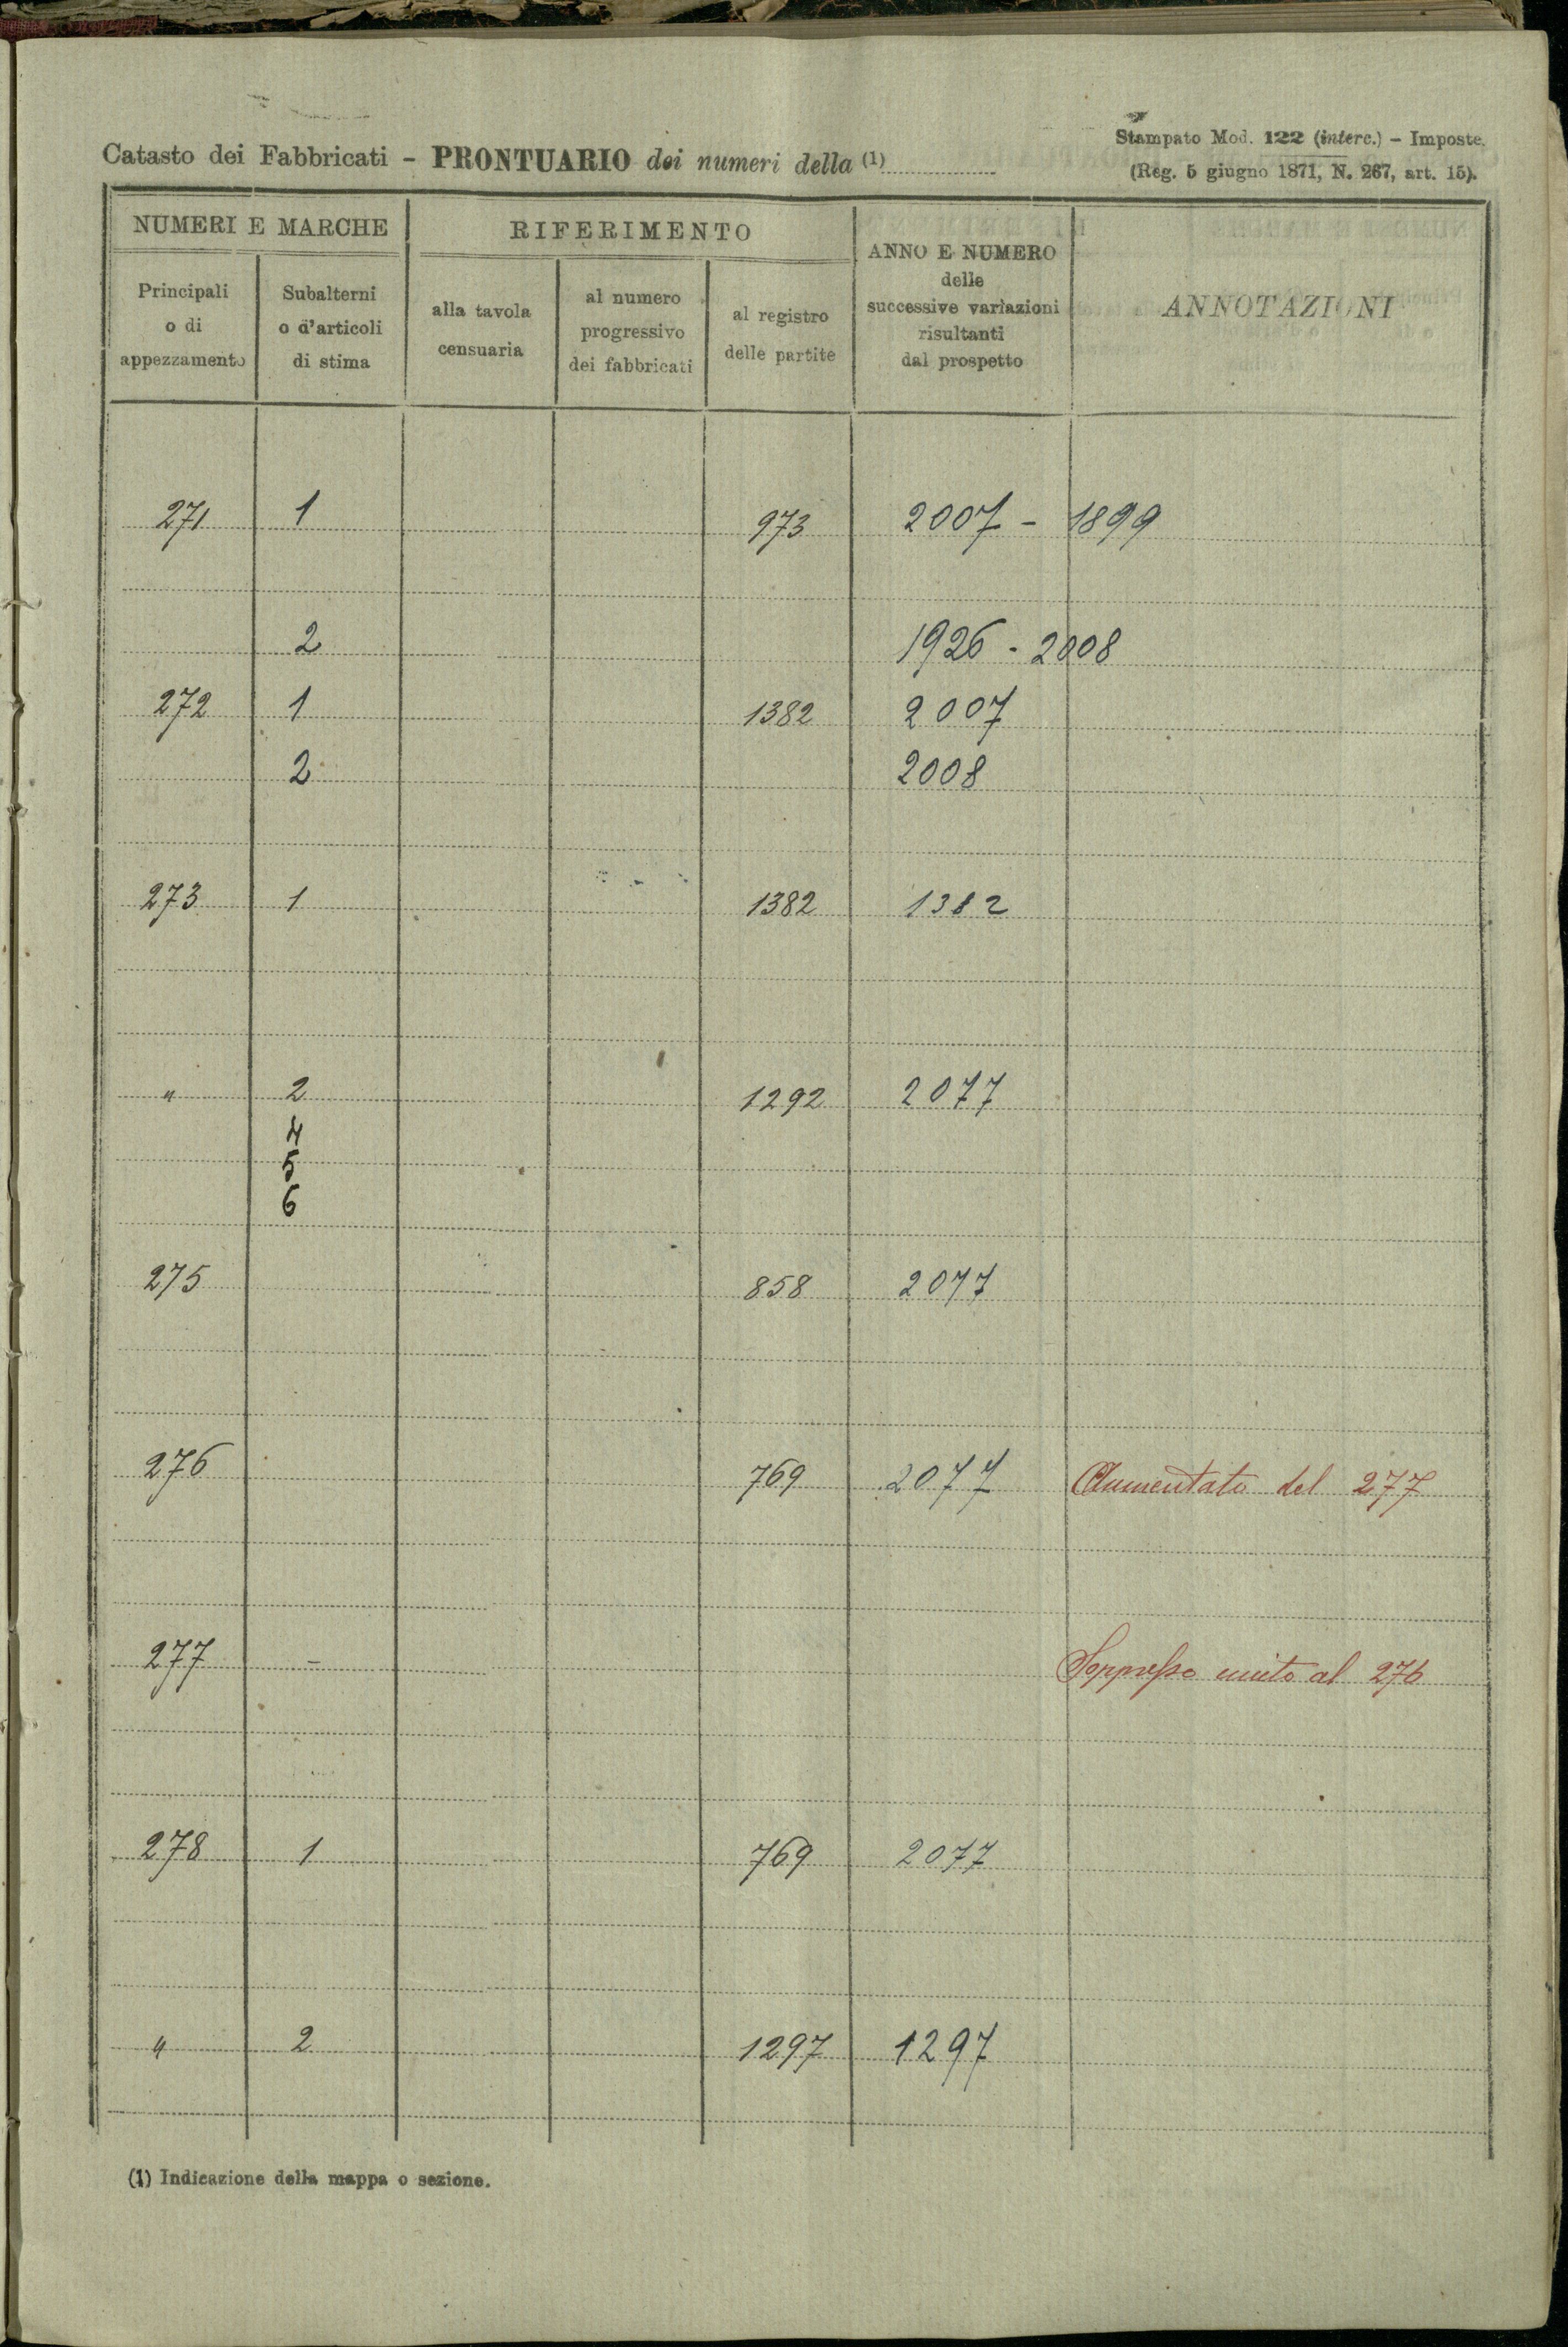 Catasto dei Fabbricati - PRONTUARIO dei numeri della (1)
Stampato Mod. 122 (interc.) - Imposte.
(Reg. 5 giugno 1871, N. 267, art. 15).
NUMERI E MARCHE
RIFERIMENTO
ANNO E NUMERO
delle
successive variazioni
risultanti
dal prospetto
ANNOTAZIONI
Principali
o di
appezzamento
Subalterni
o d'articoli
di stima
alla tavola
censuaria
al numero
progressivo
dei fabbricati
al registro
delle partite
271 1 973 2007 - 1899
2 1926 - 2008
272 1 1382 2007
2 2008
273 1 1382 1382
" 2 1292 2077
4
5
6
275 858 2077
276 769 2077 Aumentato del 277
277 - Soppresso unito al 276
278 1 769 2077
" 2 1297 1297
(1) Indicazione della mappa o sezione.